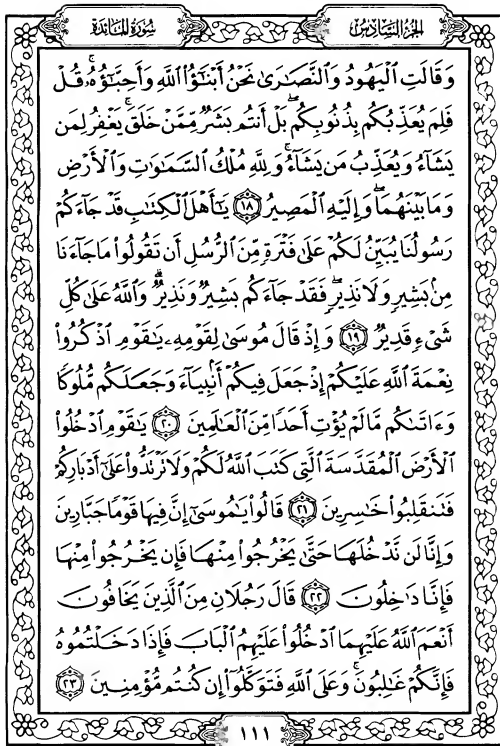 الجزء السادس
سورة المائدة
وَقَالَتِ ٱلۡيَهُودُ وَٱلنَّصَٰرَىٰ نَحۡنُ أَبۡنَٰٓؤُاْ ٱللَّهِ وَأَحِبَّٰٓؤُهُۥۚ قُلۡ
فَلِمَ يُعَذِّبُكُم بِذُنُوبِكُمۖ بَلۡ أَنتُم بَشَرٞ مِّمَّنۡ خَلَقَۚ يَغۡفِرُ لِمَن
يَشَآءُ وَيُعَذِّبُ مَن يَشَآءُۚ وَلِلَّهِ مُلۡكُ ٱلسَّمَٰوَٰتِ وَٱلۡأَرۡضِ
وَمَا بَيۡنَهُمَاۖ وَإِلَيۡهِ ٱلۡمَصِيرُ ١٨ يَٰٓأَهۡلَ ٱلۡكِتَٰبِ قَدۡ جَآءَكُمۡ
رَسُولُنَا يُبَيِّنُ لَكُمۡ عَلَىٰ فَتۡرَةٖ مِّنَ ٱلرُّسُلِ أَن تَقُولُواْ مَا جَآءَنَا
مِنۢ بَشِيرٖ وَلَا نَذِيرٖۖ فَقَدۡ جَآءَكُم بَشِيرٞ وَنَذِيرٞۗ وَٱللَّهُ عَلَىٰ كُلِّ
شَيۡءٖ قَدِيرٞ ١٩ وَإِذۡ قَالَ مُوسَىٰ لِقَوۡمِهِۦ يَٰقَوۡمِ ٱذۡكُرُواْ
نِعۡمَةَ ٱللَّهِ عَلَيۡكُمۡ إِذۡ جَعَلَ فِيكُمۡ أَنۢبِيَآءَ وَجَعَلَكُم مُّلُوكٗا
وَءَاتَىٰكُم مَّا لَمۡ يُؤۡتِ أَحَدٗا مِّنَ ٱلۡعَٰلَمِينَ ٢٠ يَٰقَوۡمِ ٱدۡخُلُواْ
ٱلۡأَرۡضَ ٱلۡمُقَدَّسَةَ ٱلَّتِي كَتَبَ ٱللَّهُ لَكُمۡ وَلَا تَرۡتَدُّواْ عَلَىٰٓ أَدۡبَارِكُمۡ
فَتَنقَلِبُواْ خَٰسِرِينَ ٢١ قَالُواْ يَٰمُوسَىٰٓ إِنَّ فِيهَا قَوۡمٗا جَبَّارِينَ
وَإِنَّا لَن نَّدۡخُلَهَا حَتَّىٰ يَخۡرُجُواْ مِنۡهَا فَإِن يَخۡرُجُواْ مِنۡهَا
فَإِنَّا دَٰخِلُونَ ٢٢ قَالَ رَجُلَانِ مِنَ ٱلَّذِينَ يَخَافُونَ
أَنۡعَمَ ٱللَّهُ عَلَيۡهِمَا ٱدۡخُلُواْ عَلَيۡهِمُ ٱلۡبَابَ فَإِذَا دَخَلۡتُمُوهُ
فَإِنَّكُمۡ غَٰلِبُونَۚ وَعَلَى ٱللَّهِ فَتَوَكَّلُوٓاْ إِن كُنتُم مُّؤۡمِنِينَ ٢٣
١١١